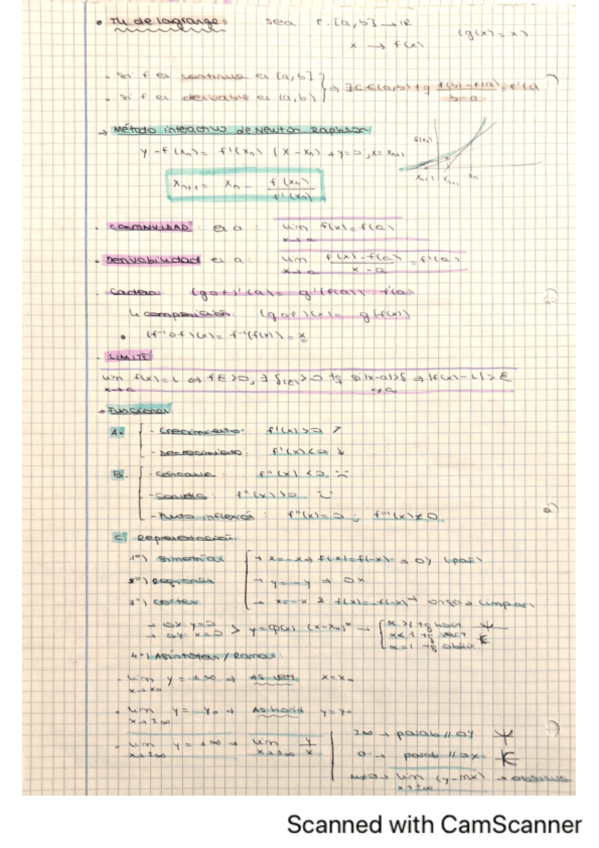 • TV de Lagrange: sea f: [a,b] → IR (g(x) = x)
x → f(x)
· Si f es continua en [a,b] } ⇒ ∃ c ∈ (a,b) tq f(b)-f(a) / b-a = f'(c)
· Si f es derivable en (a,b)
→ Método interactivo de Newton Raphson
y - f(xn) = f'(xn) (x - xn) → y=0, x = xn+1
xn+1 = xn - f(xn) / f'(xn)
· CONTINUIDAD en a: lim x→a f(x) = f(a)
· Derivabilidad en a: lim x→a f(x)-f(a) / x-a = f'(a)
· Cadena: (gof)'(a) = g'(f(a)) f'(a)
↳ composición: (gof)(x) = g(f(x))
• (f⁻¹of)(x) = f⁻¹(f(x)) = x
· LIMITE
lim x→a f(x) = L
→ Funciones
A. - Crecimiento: f'(x) > 0 ↗
- Decrecimiento: f'(x) < 0 ↘
B. - Concava: f''(x) < 0
- Convexa: f''(x) > 0
- Punto inflexión: f''(x) = 0 ; f'''(x) ≠ 0
C. Representación
1º) Simetrías → x = -x → f(x) = f(-x) → OY (par)
2º) → y = -y → OX
3º) Cortes → origen (impar)
→ OX: y=0
→ OY: x=0
4º) Asíntotas / Ramas
· lim x→x₀ y = ±∞ → AS vert x = x₀
· lim x→±∞ y = y₀ → As horiz y = y₀
· lim x→±∞ y = ±∞ → lim x→±∞ y/x
±∞ → parab // OY
0 → parab // OX
m≠0 → lim x→±∞ (y-mx) → oblicua
Scanned with CamScanner